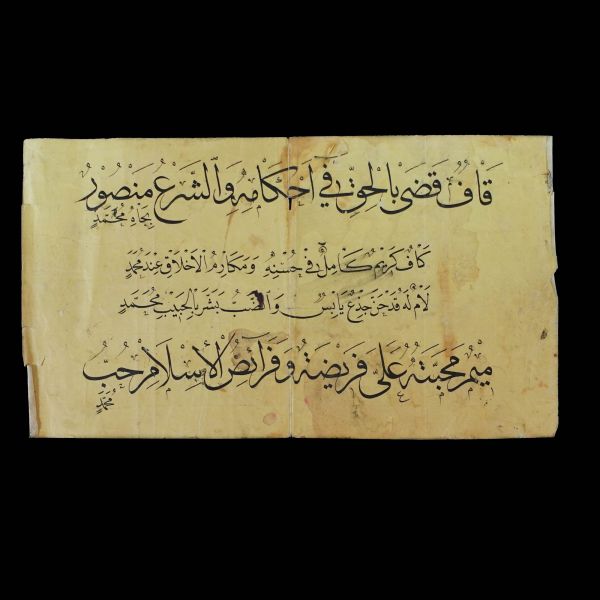 قَافٌ قَضَى بِالْحَقِّ فِي اَحْكَامِهِ وَالشَّرْعُ مَنْصُورٌ
بِجَاهِ مُحَمَّدٍ
كَافٌ كَرِيمٌ كَامِلٌ فِي حُسْنِهِ وَمَكَارِمُ الْاَخْلَاقِ عِنْدَ مُحَمَّدٍ
لَامٌ لَهُ قَدْ حَنَّ جِذْعٌ يَابِسٌ وَالضَّبُّ بَشَّرَ بِالْحَبِيبِ مُحَمَّدٍ
مِيمٌ مَحَبَّتُهُ عَلَىَّ فَرِيضَةٌ وَفَرَائِضُ الْأِسْلَامِ حُبُّ
مُحَمَّدٍ